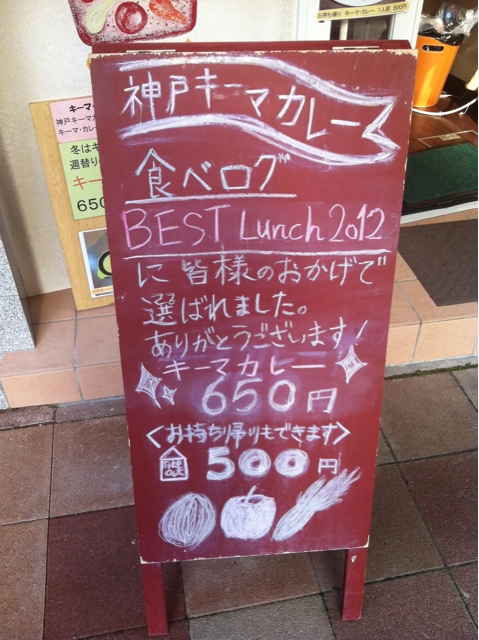 お持ち帰り キーマ・カレー 1人前 500円
神戸キーマカレー
食べログ
BEST Lunch 2012
に皆様のおかげで
選ばれました。
ありがとうございます!
キーマカレー
650円
<お持ち帰りもできます>
TAKE OUT 500円
キーマ
神戸キーマ
キーマ・カレ
冬はキ
週替り
キー
650